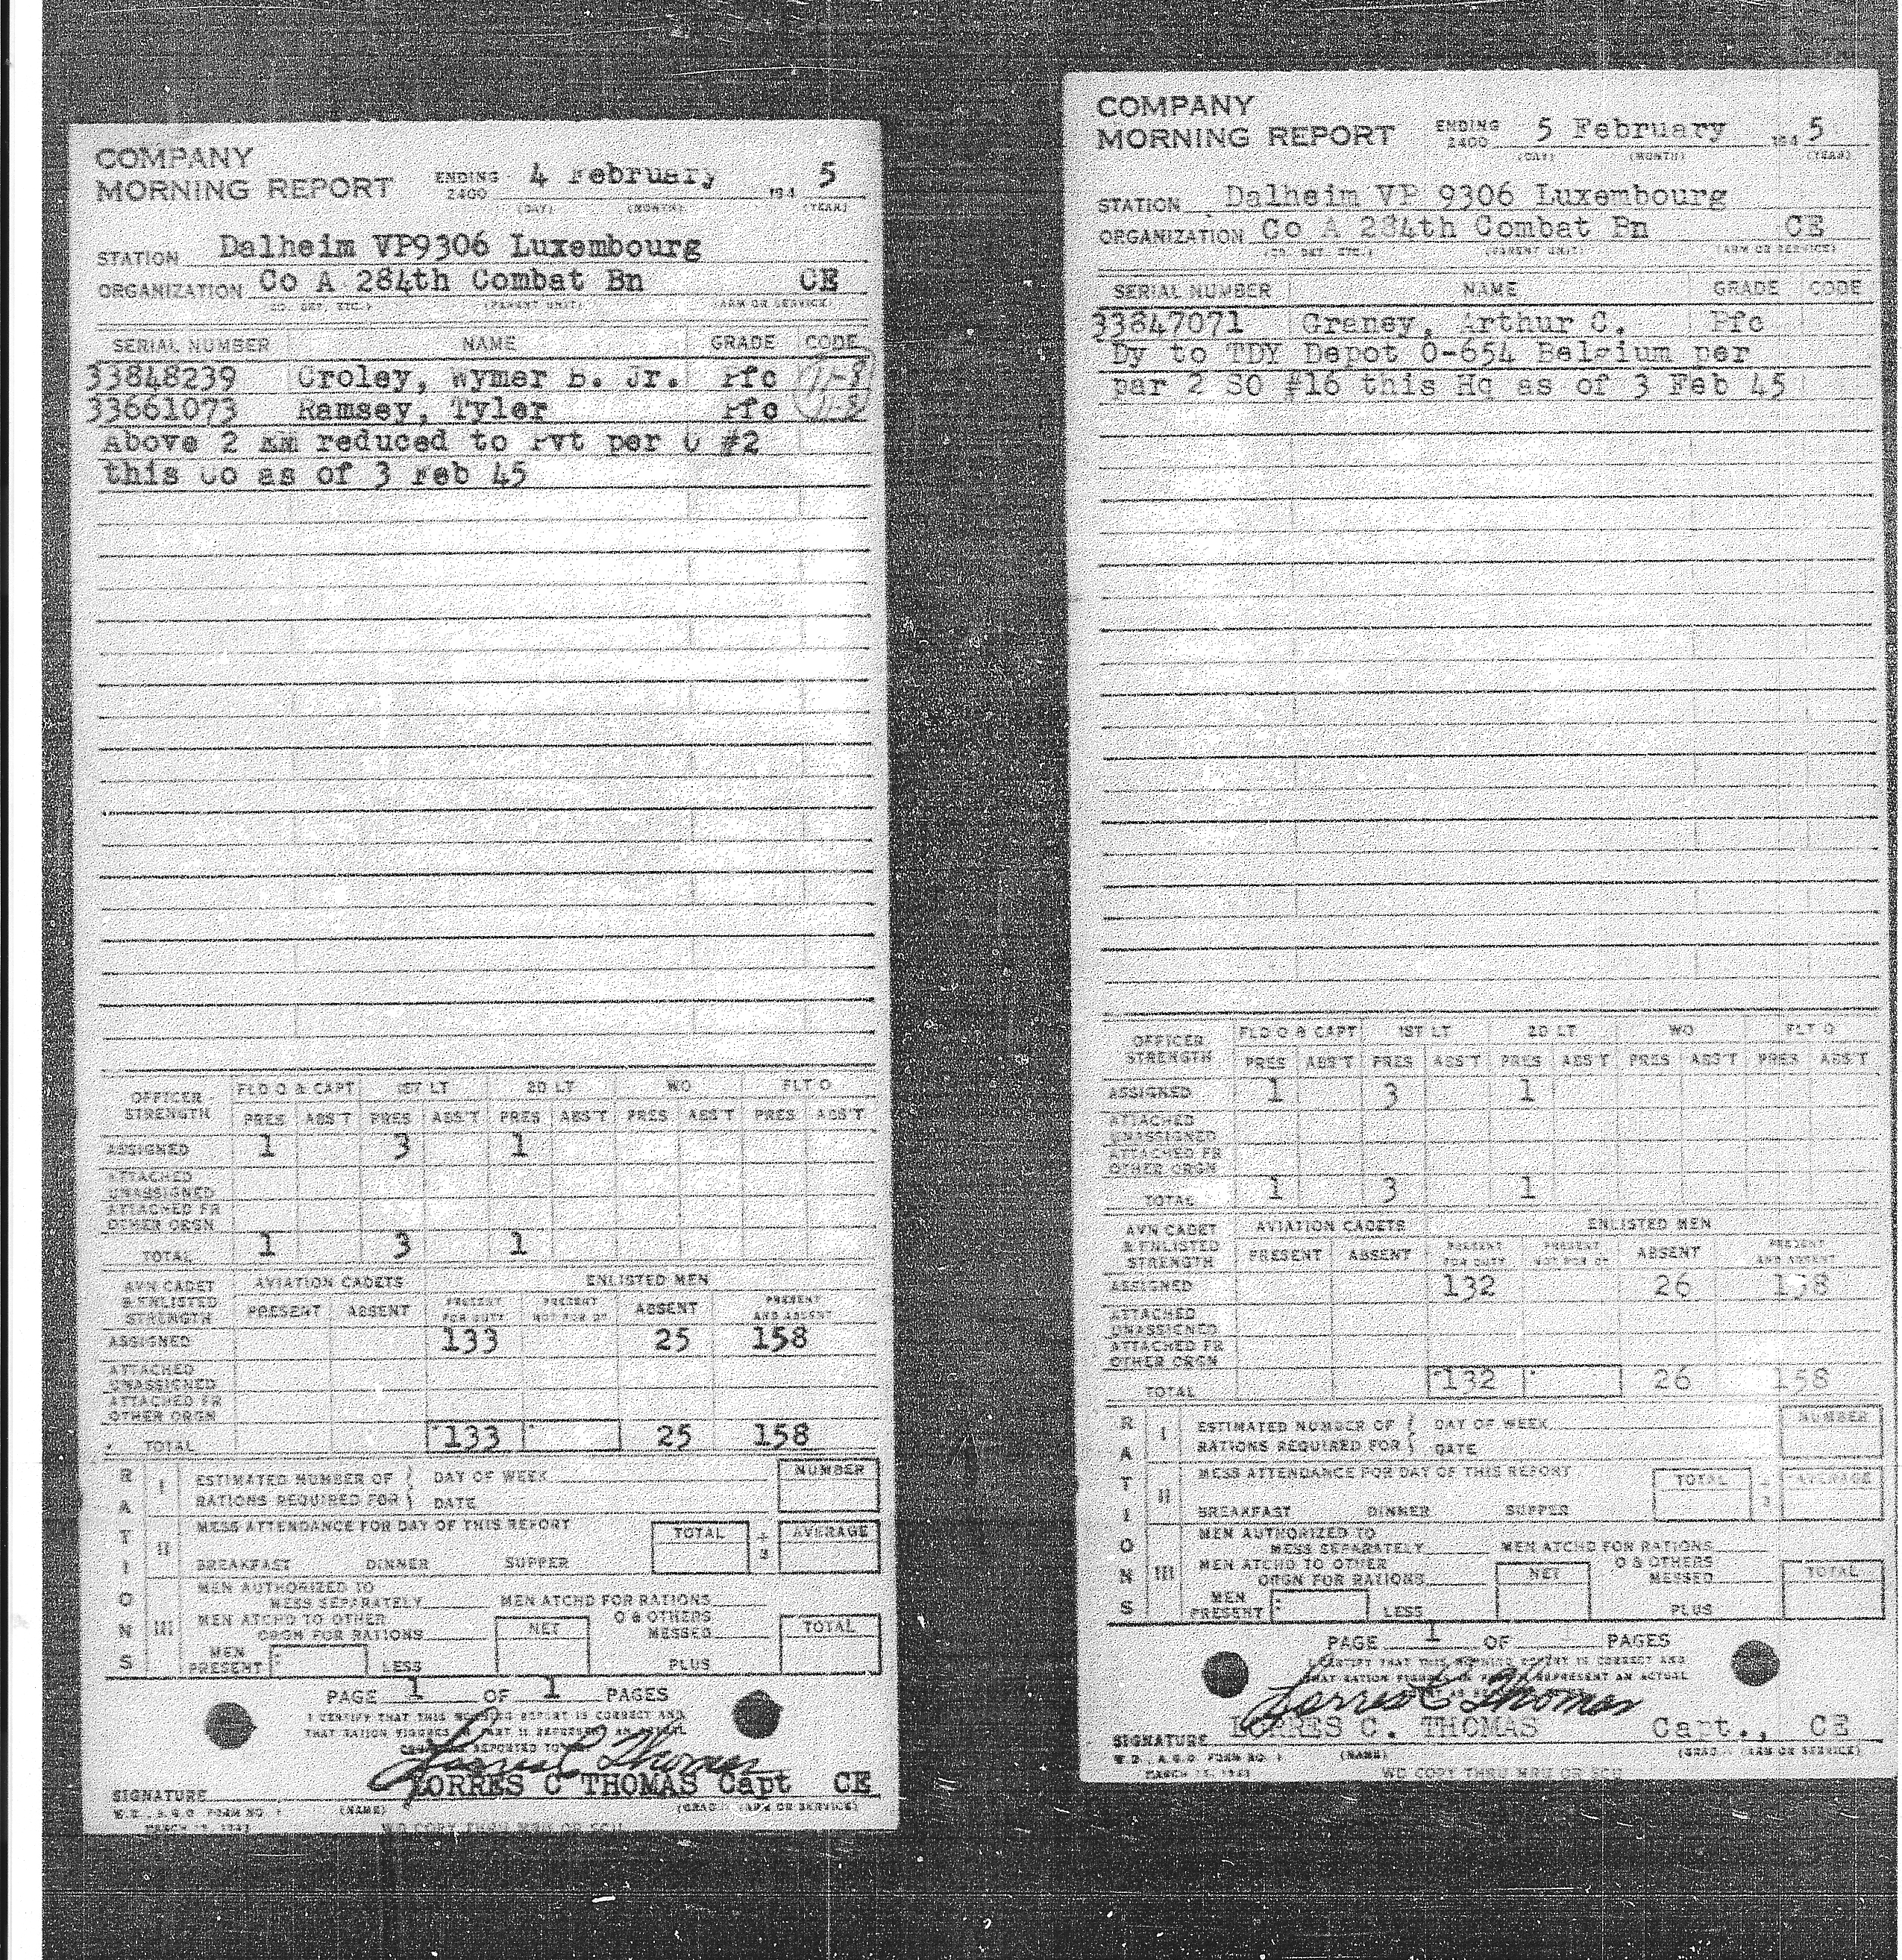 COMPANY
MORNING REPORT ENDING 2400 4 February 194 5
(DAY) (MONTH) (YEAR)
STATION Dalheim VP9306 Luxembourg
ORGANIZATION Co A 284th Combat Bn CE
(CO. DET. ETC.) (PARENT UNIT) (ARM OR SERVICE)
SERIAL NUMBER NAME GRADE CODE
33848239 Croley, Wymer B. Jr. Pfc 11-8
33661073 Ramsey, Tyler Pfc 11-8
Above 2 EM reduced to Pvt per O #2
this Co as of 3 Feb 45
OFFICER STRENGTH FLD O & CAPT 1ST LT 2D LT WO FLT O
PRES ABS'T PRES ABS'T PRES ABS'T PRES ABS'T PRES ABS'T
ASSIGNED 1 3 1
ATTACHED UNASSIGNED
ATTACHED FR OTHER ORGN
TOTAL 1 3 1
AVN CADET & ENLISTED STRENGTH AVIATION CADETS ENLISTED MEN
PRESENT ABSENT PRESENT FOR DUTY PRESENT NOT FOR DY ABSENT PRESENT AND ABSENT
ASSIGNED 133 25 158
ATTACHED UNASSIGNED
ATTACHED FR OTHER ORGN
TOTAL 133 25 158
RATIONS
I ESTIMATED NUMBER OF DAY OF WEEK NUMBER
RATIONS REQUIRED FOR DATE
II MESS ATTENDANCE FOR DAY OF THIS REPORT TOTAL ÷ 3 AVERAGE
BREAKFAST DINNER SUPPER
III MEN AUTHORIZED TO MESS SEPARATELY MEN ATCHD FOR RATIONS
MEN ATCHD TO OTHER ORGN FOR RATIONS NET O & OTHERS MESSED TOTAL
MEN PRESENT LESS PLUS
PAGE 1 OF 1 PAGES
I CERTIFY THAT THIS MORNING REPORT IS CORRECT AND
THAT RATION FIGURES IN PART III REPRESENT AN ACTUAL
REPORTED TO
Lorres C Thomas
SIGNATURE LORRES C THOMAS Capt CE
W.D., A.G.O. FORM NO. 1 (NAME) (GRADE) (ARM OR SERVICE)
MARCH 15, 1943 WD COPY THRU MRU OR SCU
COMPANY
MORNING REPORT ENDING 2400 5 February 194 5
(DAY) (MONTH) (YEAR)
STATION Dalheim VP 9306 Luxembourg
ORGANIZATION Co A 284th Combat Bn CE
(CO. DET. ETC.) (PARENT UNIT) (ARM OR SERVICE)
SERIAL NUMBER NAME GRADE CODE
33847071 Graney, Arthur C. Pfc
Dy to TDY Depot O-654 Belgium per
par 2 SO #16 this Hq as of 3 Feb 45
OFFICER STRENGTH FLD O & CAPT 1ST LT 2D LT WO FLT O
PRES ABS'T PRES ABS'T PRES ABS'T PRES ABS'T PRES ABS'T
ASSIGNED 1 3 1
ATTACHED UNASSIGNED
ATTACHED FR OTHER ORGN
TOTAL 1 3 1
AVN CADET & ENLISTED STRENGTH AVIATION CADETS ENLISTED MEN
PRESENT ABSENT PRESENT FOR DUTY PRESENT NOT FOR DY ABSENT PRESENT AND ABSENT
ASSIGNED 132 26 158
ATTACHED UNASSIGNED
ATTACHED FR OTHER ORGN
TOTAL 132 26 158
RATIONS
I ESTIMATED NUMBER OF DAY OF WEEK NUMBER
RATIONS REQUIRED FOR DATE
II MESS ATTENDANCE FOR DAY OF THIS REPORT TOTAL ÷ 3 AVERAGE
BREAKFAST DINNER SUPPER
III MEN AUTHORIZED TO MESS SEPARATELY MEN ATCHD FOR RATIONS
MEN ATCHD TO OTHER ORGN FOR RATIONS NET O & OTHERS MESSED TOTAL
MEN PRESENT LESS PLUS
PAGE 1 OF PAGES
I CERTIFY THAT THIS MORNING REPORT IS CORRECT AND
THAT RATION FIGURES IN PART III REPRESENT AN ACTUAL
Lorres C Thomas
SIGNATURE LORRES C. THOMAS Capt., CE
W.D., A.G.O. FORM NO. 1 (NAME) (GRADE) (ARM OR SERVICE)
MARCH 15, 1943 WD COPY THRU MRU OR SCU